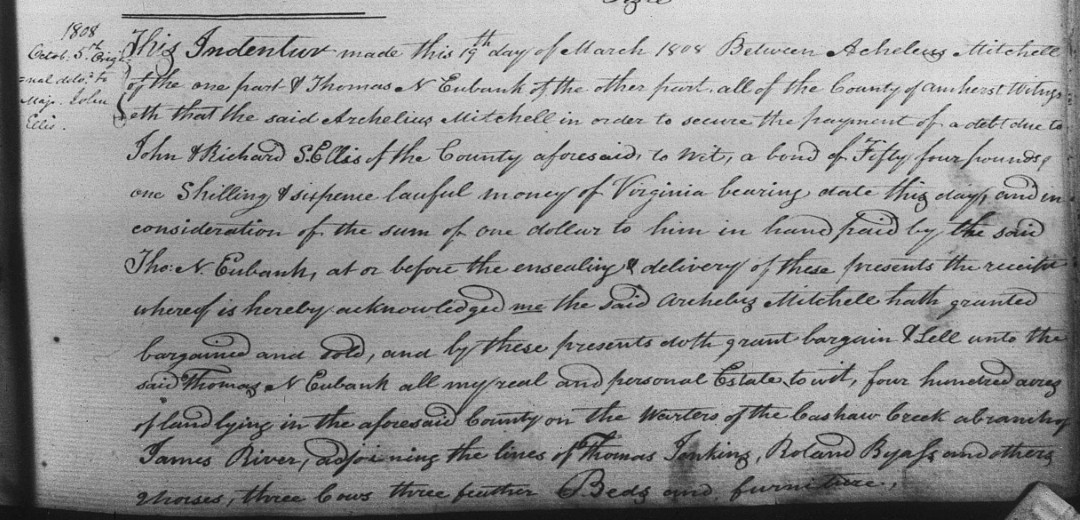 1808
Octob. 5th Origi
=nal deld. to
Maj. John
Ellis.
This Indentur made this 19th day of March 1808 Between Achelius Mitchell
of the one part & Thomas N Eubank of the other part. all of the County of amherst Witness
eth that the said Archelius Mitchell in order to secure the payment of a debt due to
John & Richard S. Ellis of the County aforesaid, to wit, a bond of Fifty four pounds,
one Shilling & sixpence lawful money of Virginia bearing date this day, and in
consideration of the sum of one dollar to him in hand paid by the said
Tho: N. Eubank, at or before the ensealing & delivery of these presents the receipt
whereof is hereby acknowledged me the said Archelus Mitchell hath granted
bargained and sold, and by these presents doth grant bargain & Sell unto the
said Thomas N Eubank all my real and personal Estate to wit, four hundred acres
of land lying in the aforesaid County on the Warters of the Cashaw Creek a branch of
James River, adjoining the lines of Thomas Jenkins, Roland Byass and others
2 horses, three Cows three feather Beds and furniture,